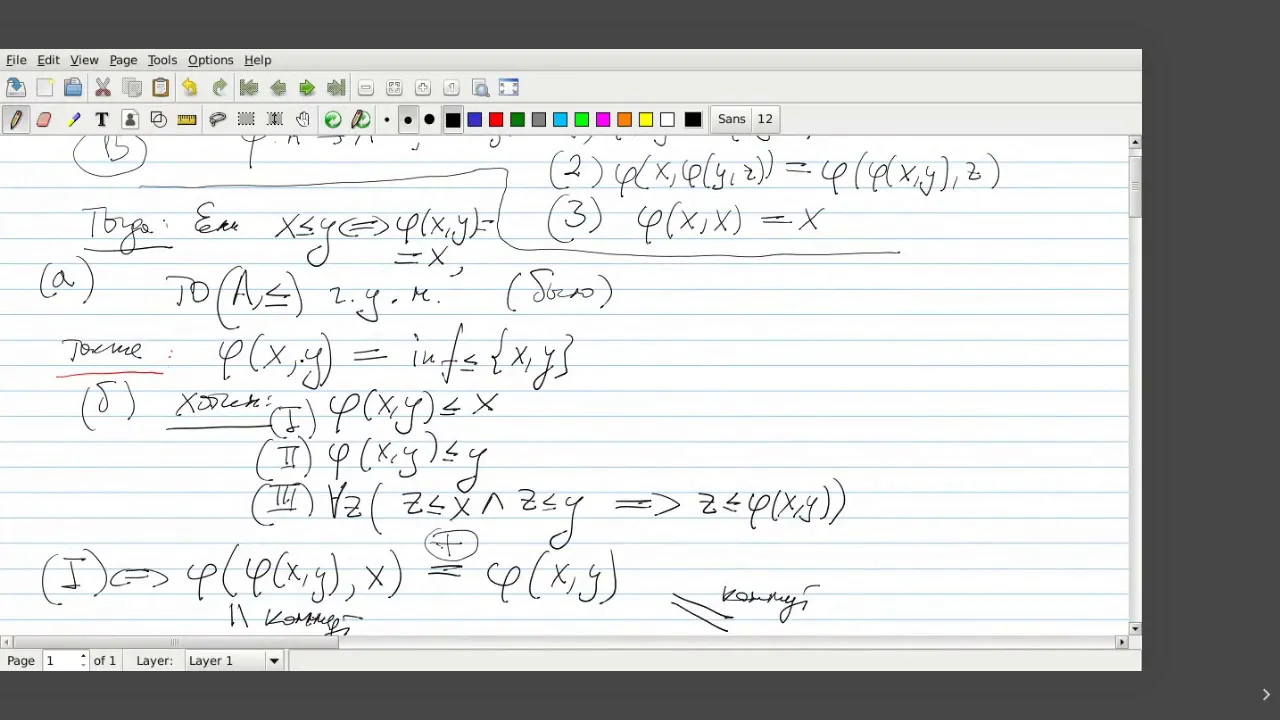 File Edit View Page Tools Options Help
Sans 12
(2) φ(x,φ(y,z)) = φ(φ(x,y),z)
Тогда: Если x≤y⟺φ(x,y)=
=x,
(3) φ(x,x) = x
(а) то (A,≤) ч.у.м. (было)
также: φ(x,y) = inf≤{x,y}
(б) хотим: (I) φ(x,y)≤x
(II) φ(x,y)≤y
(III) ∀z( z≤x ∧ z≤y ⟹ z≤φ(x,y))
+
(I)⟺ φ(φ(x,y),x) = φ(x,y)
коммут
|| коммут
Page 1 of 1 Layer: Layer 1